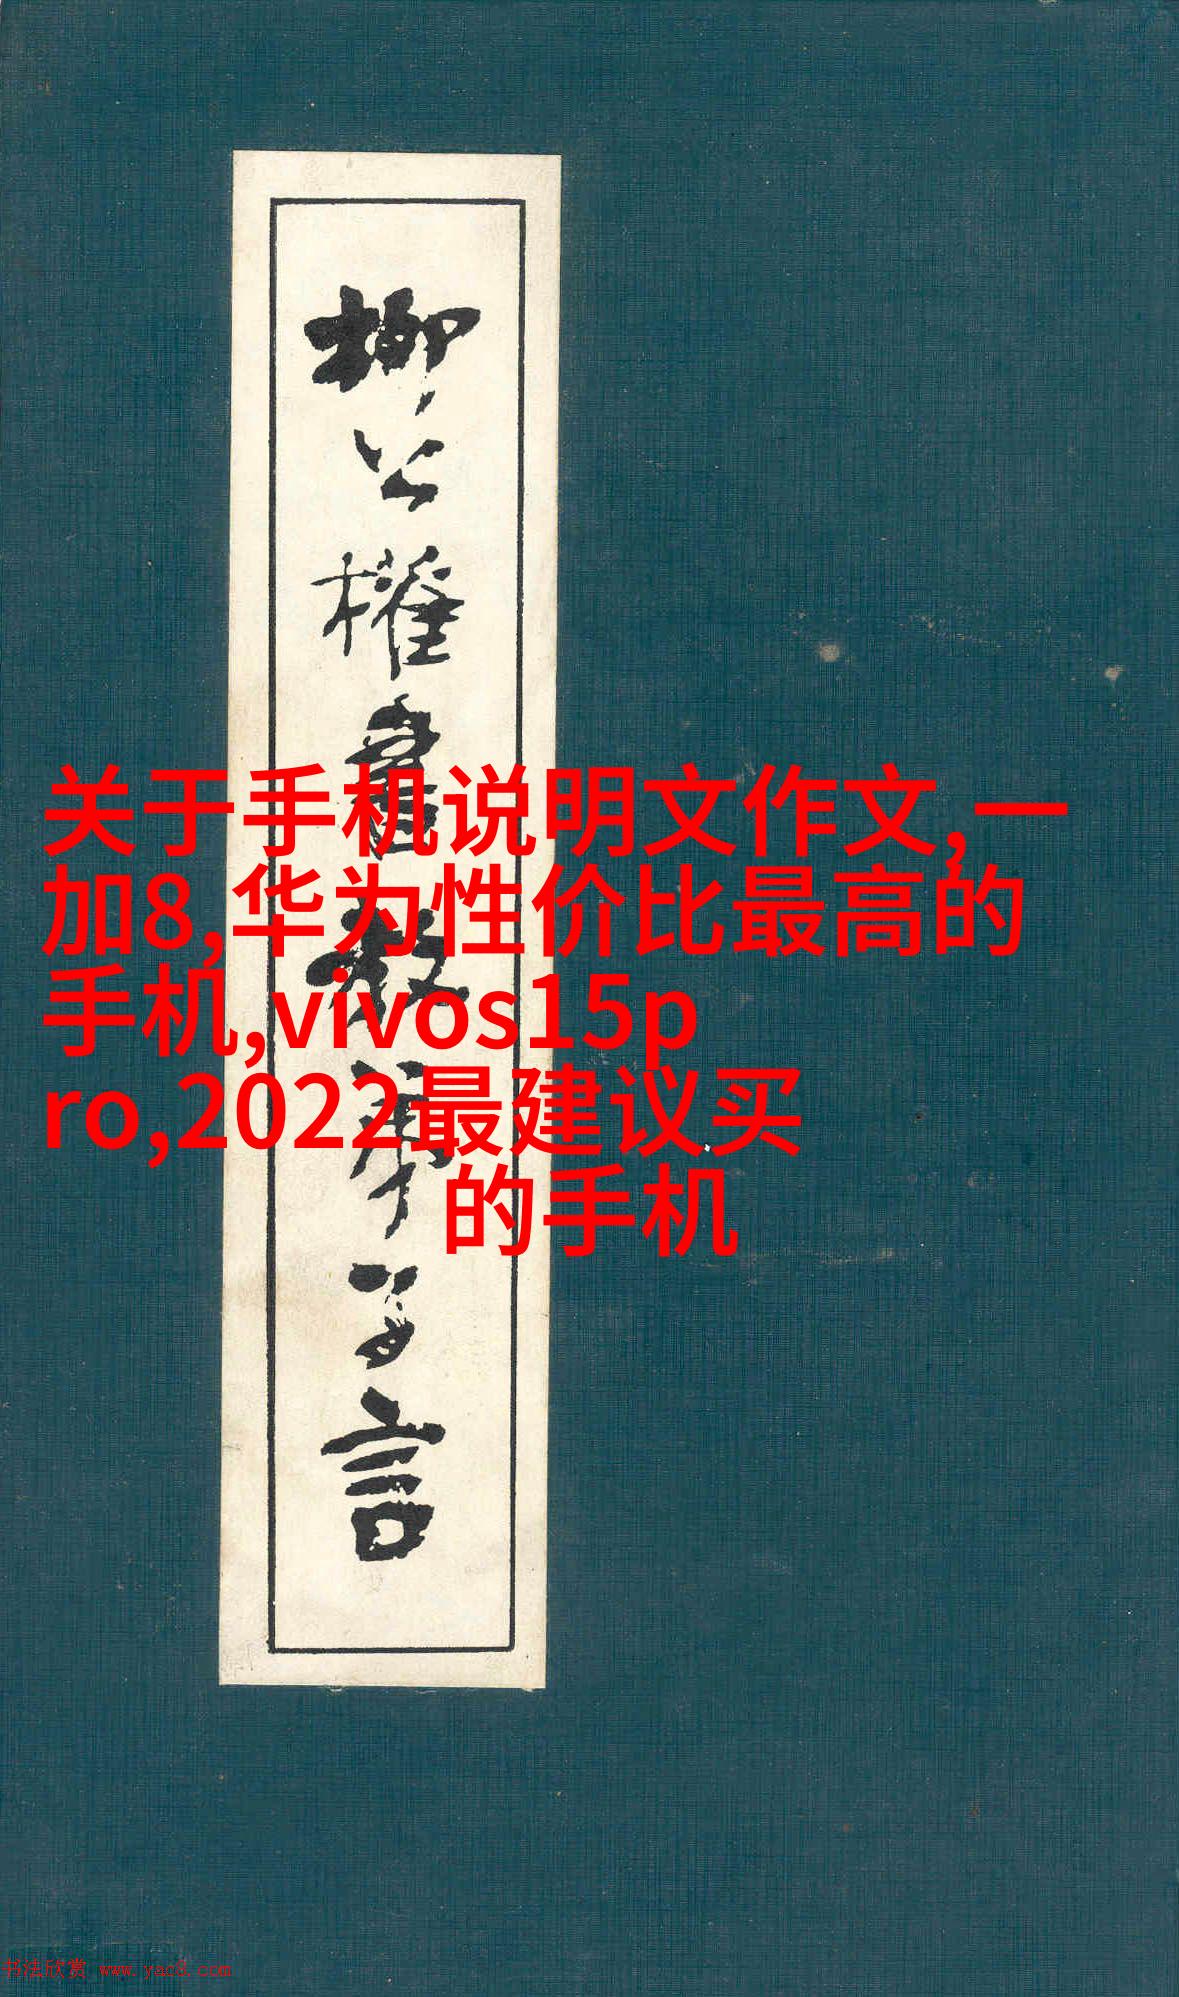 柳公權書教弟子言
关于手机说明文作文,一
加8,华为性价比最高的
手机,vivos15p
ro,2022最建议买
的手机
书法欣赏 www.yac8.com